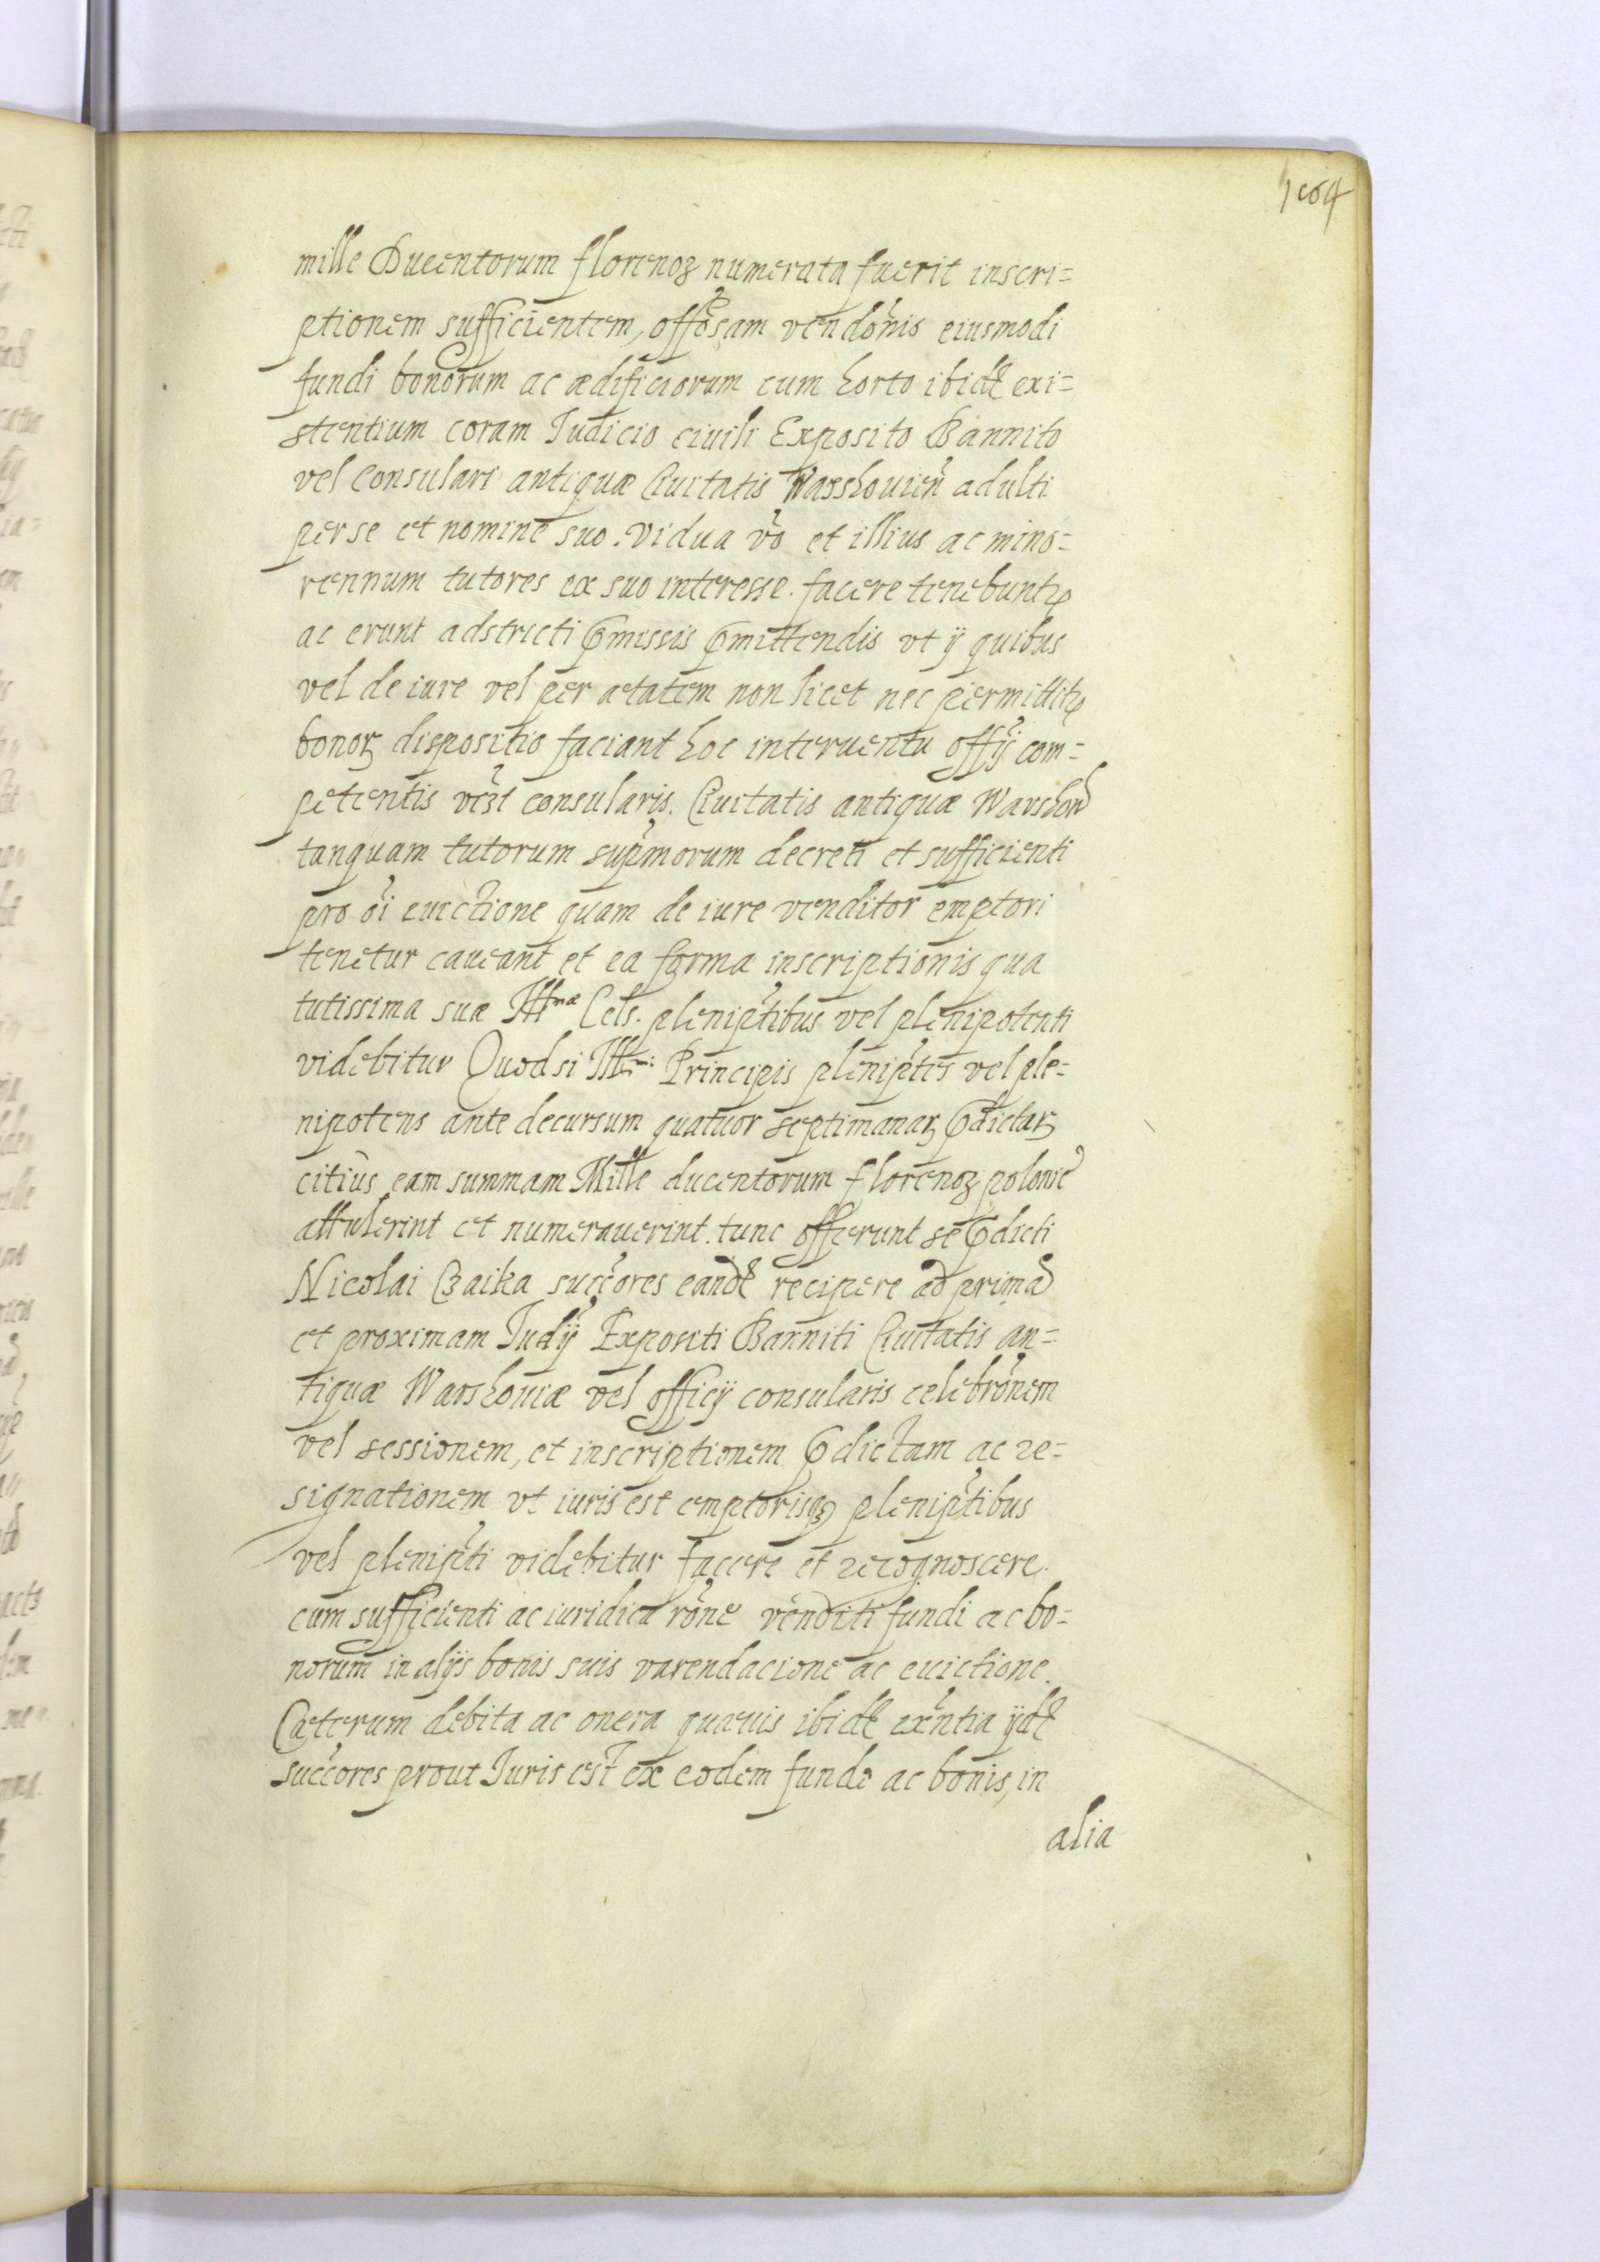 mille Ducentorum florenoꝝ numerata fuerit inscri=
ptionem sufficientem, offõsam vendõnis eiusmodi
fundi bonorum ac ædificiorum cum horto ibidẽ exi=
stentium coram Iudicio ciuili Exposito Bannito
vel Consulari antiquæ Ciuitatis Warshouieñ adulti
per se et nomine suo. vidua võ et illius ac mino=
rennum tutores ex suo interesse. facere tenebuntꝛ
ac erunt adstricti p̃missis p̃mittendis vt ij quibus
vel de iure vel per ætatem non licet nec permittitꝛ
bonoꝝ dispositio faciant hoc interuentu offij com=
petentis vizt consularis. Ciuitatis antiquæ Warshou
tanquam tutorum sup̃morum decreti et sufficienti
pro oĩ euictione quam de iure venditor emptori
tenetur caueant et ea forma inscriptionis qua
tutissima suæ Illmæ Cels. plenip̃tibus vel plenipotenti
videbitur Quodsi Illmi: Principis plenip̃tes vel ple=
nipotens ante decursum quatuor septimanaꝝ p̃dictaꝝ
citius eam summam Mille ducentorum florenoꝝ polonic
attulerint et numerauerint. tunc offerunt se p̃dicti
Nicolai Czaika succ̃ores eandẽ recipere ad primã
et proximam Iudij Expositi Banniti Ciuitatis an=
tiquæ Warshouiæ vel officij consularis celebrõnem
vel sessionem, et inscriptionem p̃dictam ac re=
signationem vt iuris est emptorisqꝫ plenip̃tibus
vel plenip̃ti videbitur facere et recognoscere.
cum sufficienti ac iuridica rõne venditi fundi ac bo=
norum in alijs bonis suis varendacione ac euictione.
Cæterum debita ac onera quæuis ibidẽ exñtia ijdẽ
succ̃ores prout Iuris est ex eodem fundo ac bonis, in
alia